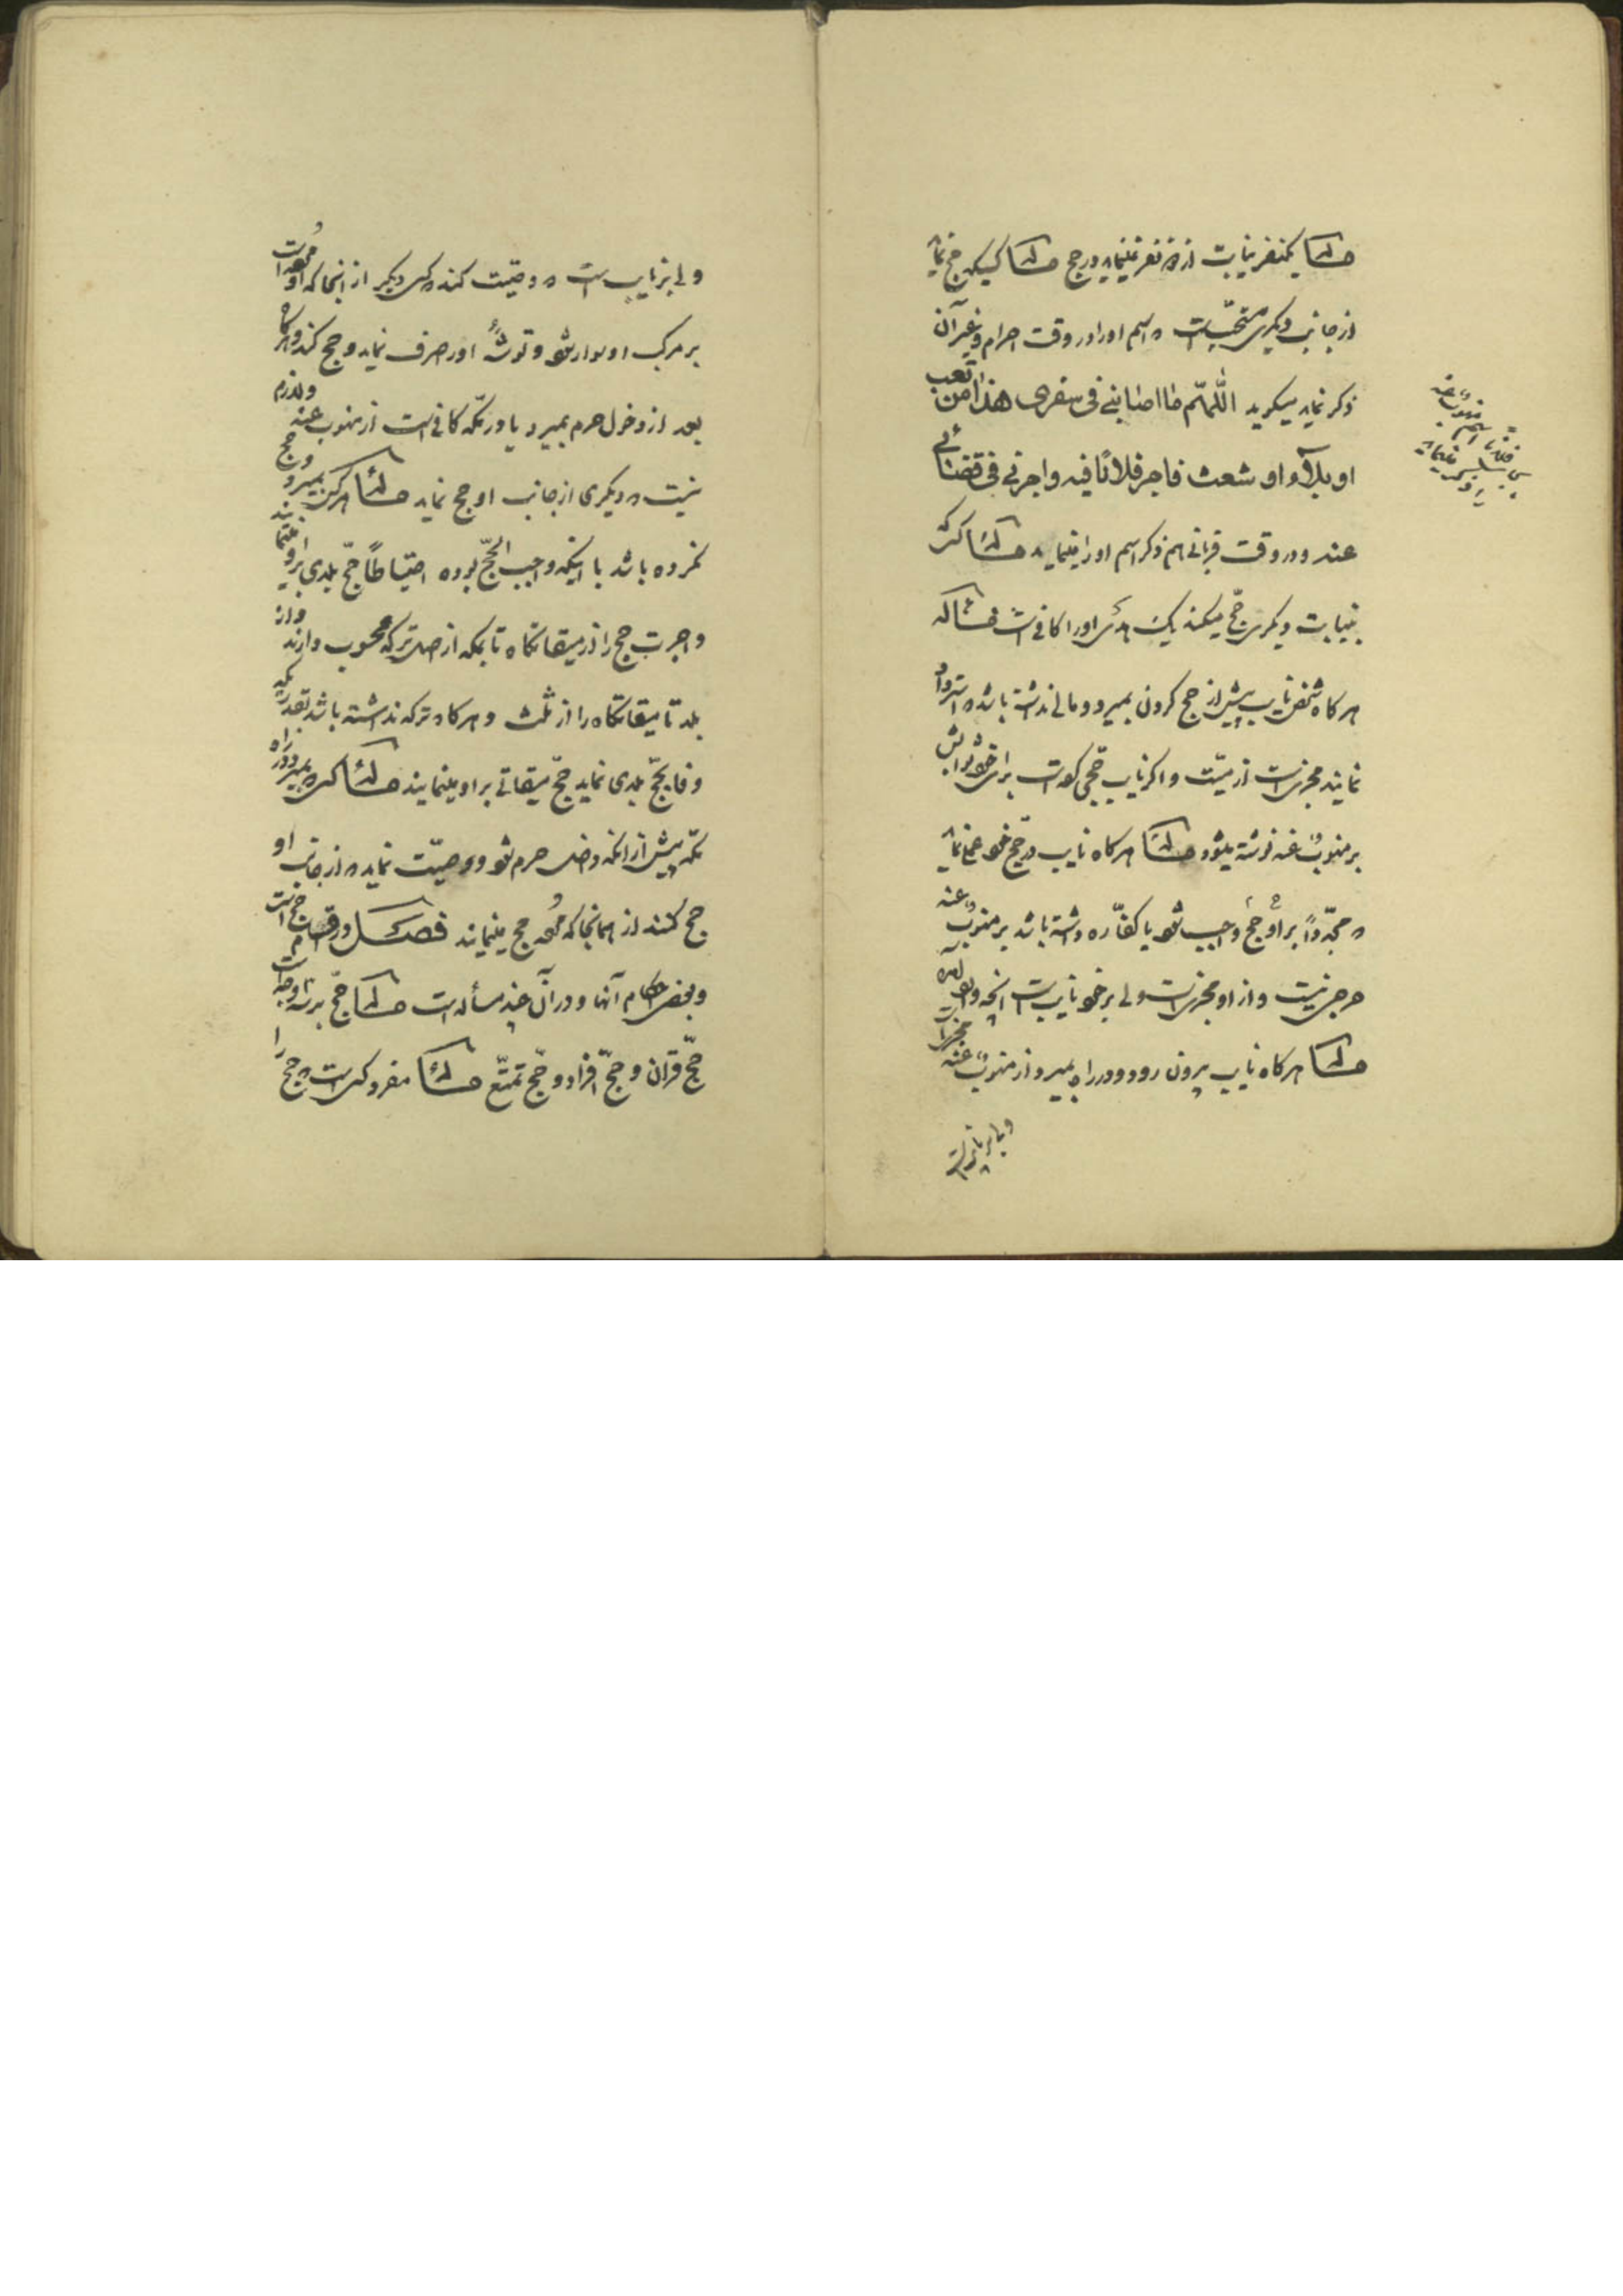 مسئله یکنفر نیابت از دو نفر نمینماید در حج مسئله کسیکه حج نماید
از جانب دیگری مستحب است که اسم او را در وقت احرام و غیر آن
ذکر نماید میگوید اللّهمّ ما اصابنی فی سفری هذا من تعب
او بلاء او شعث فاجر فلانًا فیه واجرنی فی قضائی
عنه و در وقت قربانی هم ذکر اسم او را مینماید مسئله کسیکه
بنیابت دیگری حجّ میکند یک هدی او را کافی است مسئله
هرگاه شخص نایب پیش از حج کردن بمیرد و مالی نداشته باشد که استرداد
نمایند مجزی است از میّت و اگر نایب حجی کرده است برای خود ثوابش
بر منوبٌ عنه نوشته میشود مسئله هرگاه نایب در حج خود عملی نماید
که مجدّداً بر او حج واجب شود یا کفّاره داشته باشد بر منوبٌ عنه
حرجی نیست و از او مجزی است ولی بر خود نایب است آنچه وارد آمده
مسئله هرگاه نایب بیرون رود و در راه بمیرد از منوبٌ عنه مجزی است
ولی بر نایب است که وصیّت کند کسی دیگر از آنجا که او مرده است
بر مرکب او سوار شود و توشهٔ او را صرف نماید و حج کند و هرگاه
بعد از دخول حرم بمیرد یا در مکّه کافی است از منوب عنه و لازم
نیست که دیگری از جانب او حج نماید مسئله هرکس بمیرد و حج
نکرده باشد با اینکه واجب الحجّ بوده احتیاطاً حجّ بلدی برای او مینمایند
و اجرت حج را از میقاتگاه تا بمکه از اصل ترکه محسوب دارند و از
بلد تا میقاتگاه را از ثلث و هرگاه ترکه نداشته باشد بقدریکه
وفا بحجّ بلدی نماید حجّ میقاتی برای او مینمایند مسئله کسیکه بمیرد در راه
مکّه پیش از آنکه داخل حرم شود و وصیّت نماید که از جانب او
حج کنند از همانجا که مرده حج مینمایند فصل در اقسام حج است
و بعض احکام آنها و در آن چند مسأله است مسئله حجّ بر سه وجه است
حجّ قران و حجّ افراد و حجّ تمتّع مسئله مفرد کسی است که حج را